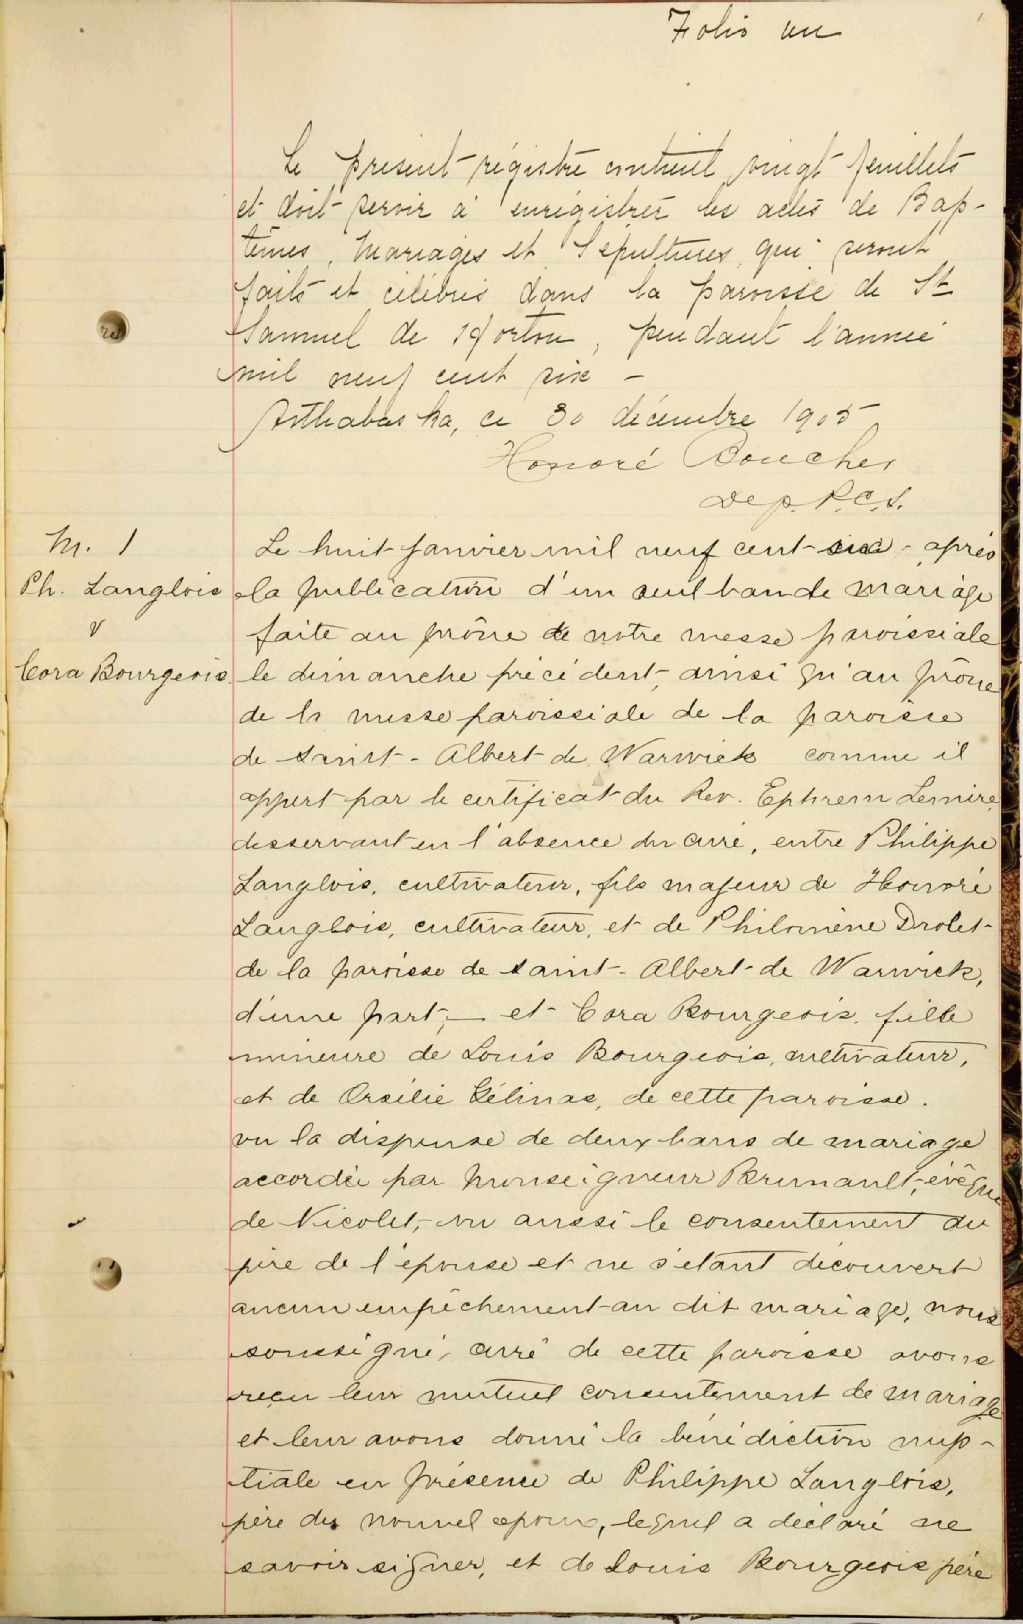 Folio un
Le présent régistre contient vingt feuillets
et doit servir à enrégistrer les actes de Bap-
têmes, Mariages et Sépultures qui seront
faits et célébrés dans la paroisse de St
Samuel de Horton, pendant l'année
mil neuf cent six -
Arthabaska, ce 30 décembre 1905
Honoré Boucher
Dep. P.C.S.
M. 1
Ph. Langlois
&
Cora Bourgeois.
Le huit janvier mil neuf cent six - après
la publication d'un seul ban de mariage
faite au prône de notre messe paroissiale
le dimanche précédent, ainsi qu'au prône
de la messe paroissiale de la paroisse
de saint-Albert de Warwick comme il
appert par le certificat du Rev. Ephrem Lemire,
desservant en l'absence du curé, entre Philippe
Langlois, cultivateur, fils majeur de Honoré
Langlois, cultivateur, et de Philomène Drolet
de la paroisse de saint-Albert de Warwick,
d'une part, — et Cora Bourgeois, fille
mineure de Louis Bourgeois, cultivateur,
et de Orsilie Gélinas, de cette paroisse.
vu la dispense de deux bans de mariage
accordée par Monseigneur Brunault, évêque
de Nicolet, vu aussi le consentement du
père de l'épouse et ne s'étant découvert
aucun empêchement au dit mariage, nous
soussigné, curé de cette paroisse avons
reçu leur mutuel consentement de mariage
et leur avons donné la bénédiction nup-
tiale en présence de Philippe Langlois,
père du nouvel époux, lequel a déclaré ne
savoir signer, et de Louis Bourgeois père